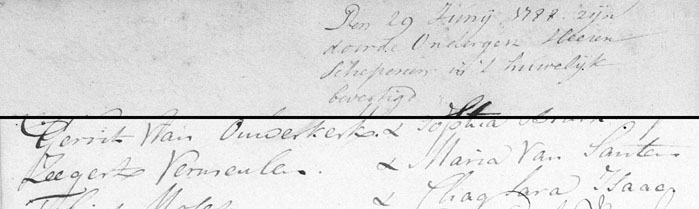 Den 29 Junij 1788. zijn
doorde Ondergen: Heeren
Schepenen in 't huwelijk
bevestigd
Gerrit Van Ouwerkerk & Sophia
Zeegert Vermeulen. & Maria Van Santen
& Chag Sara Isaac